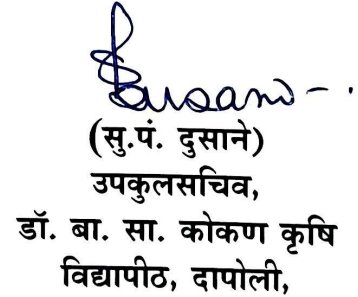 (सु.पं. दुसाने)
उपकुलसचिव,
डॉ. बा. सा. कोकण कृषि
विद्यापीठ, दापोली,